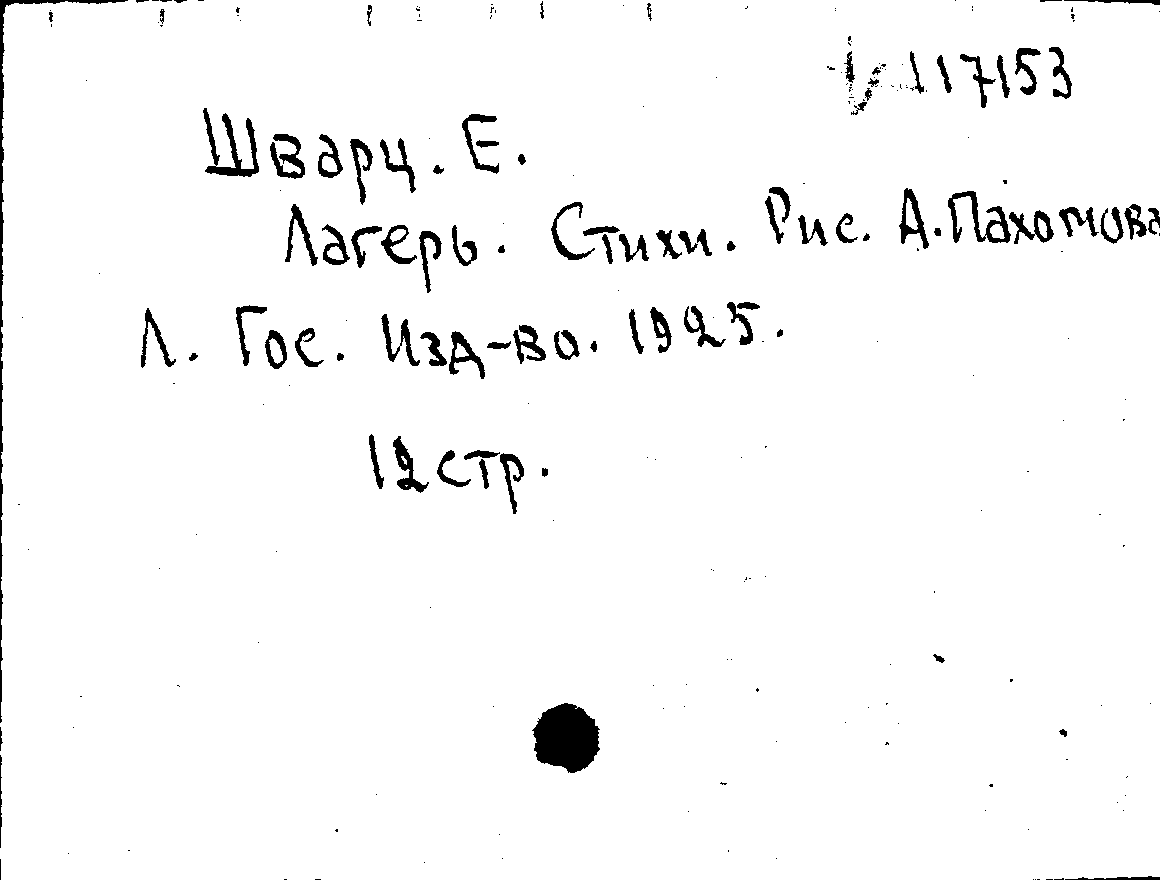 117153
Шварц. Е.
Лагерь. Стихи. Рис. А. Пахомова
Л. Гос. Изд-во. 1925.
12 стр.